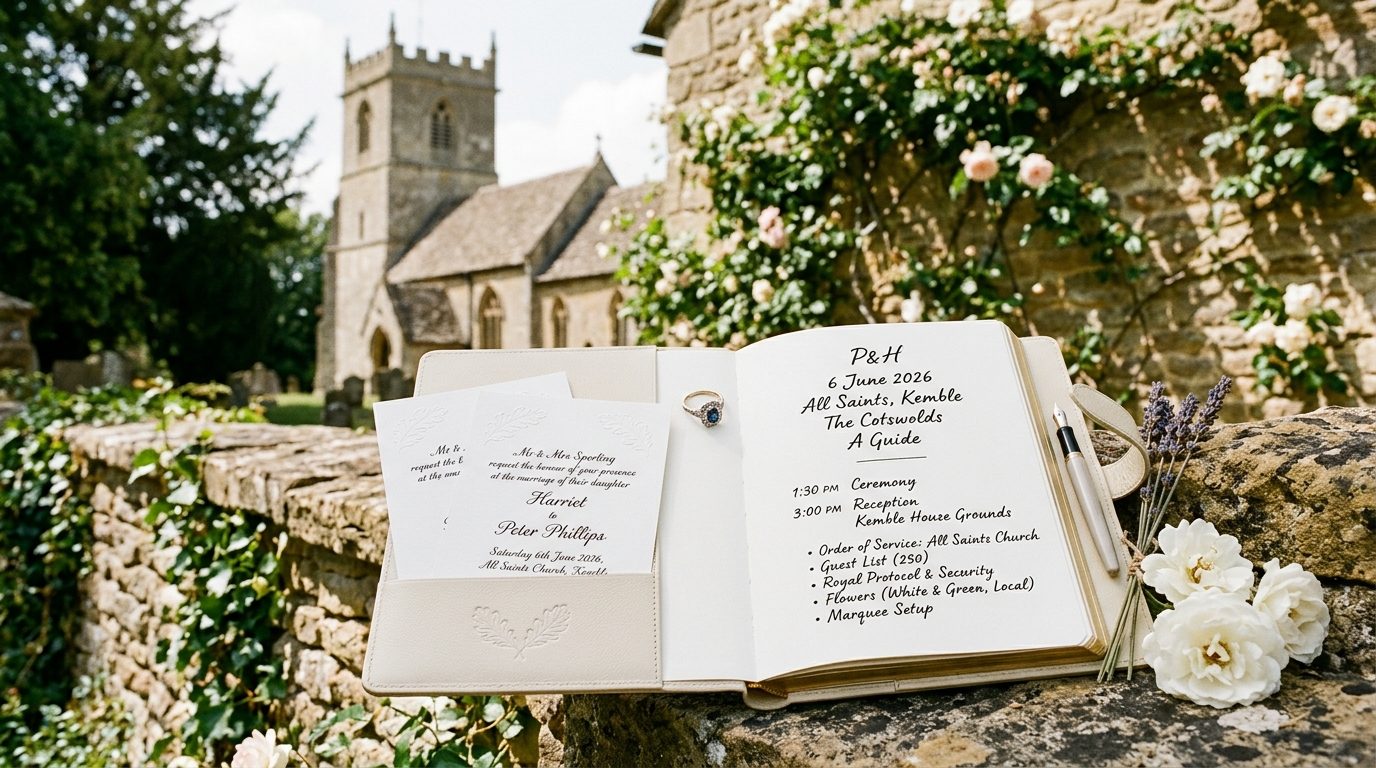 Mr &
request the
at the ma
Mr & Mrs Sperling
request the honour of your presence
at the marriage of their daughter
Harriet
to
Peter Phillips
Saturday 6th June 2026,
All Saints Church, Kemble
P&H
6 June 2026
All Saints, Kemble
The Cotswolds
A Guide
1:30 PM Ceremony
3:00 PM Reception
Kemble House Grounds
• Order of Service: All Saints Church
• Guest List (250)
• Royal Protocol & Security
• Flowers (White & Green, Local)
• Marquee Setup